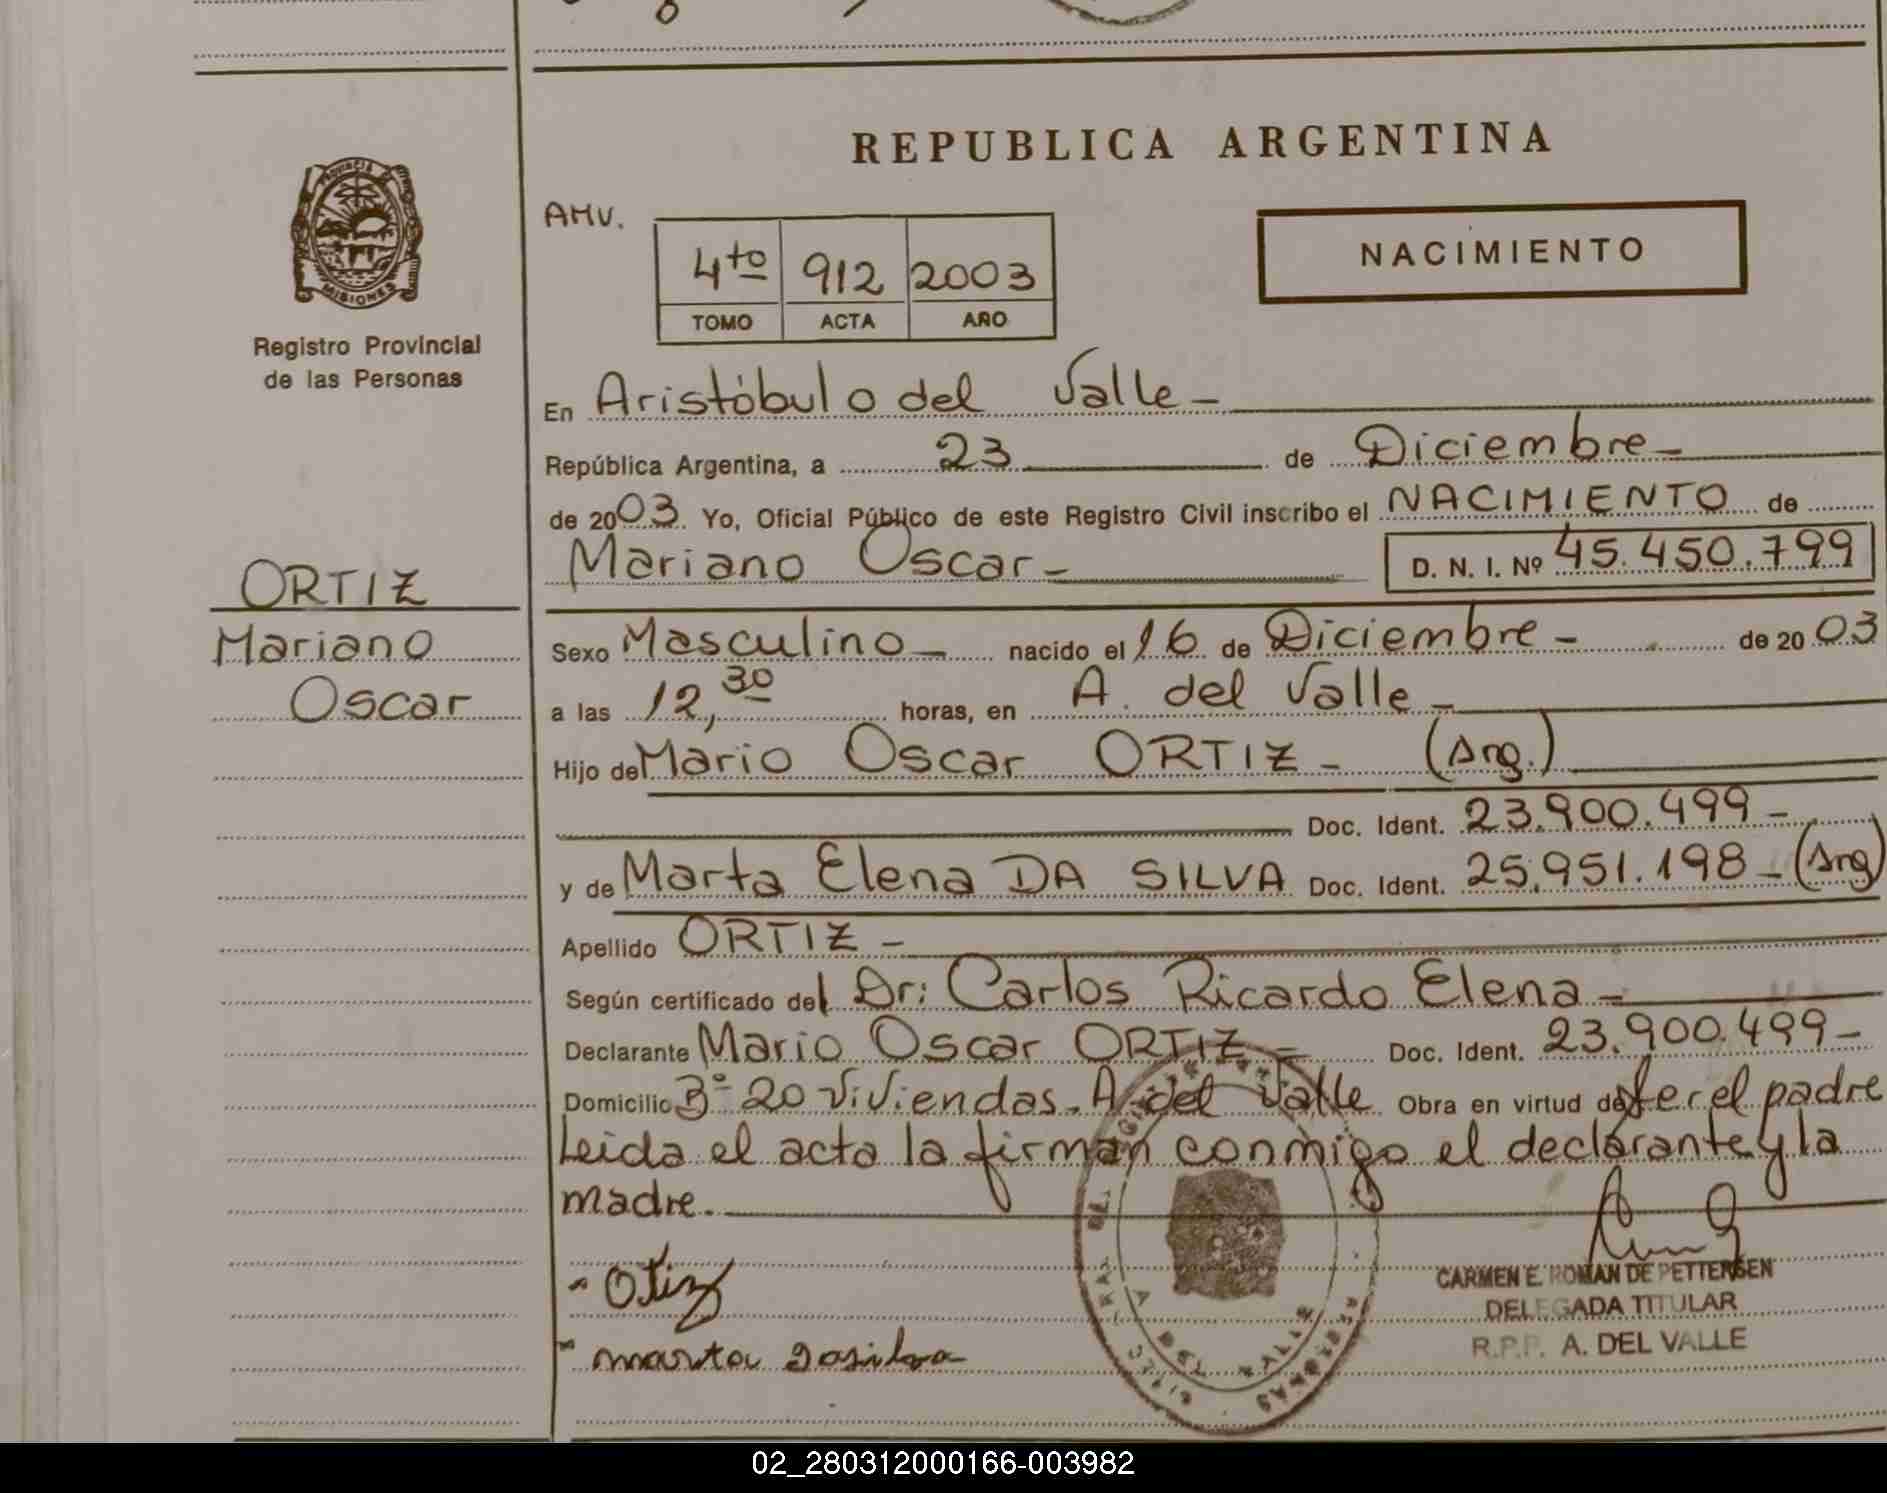 REPUBLICA ARGENTINA
PROVINCIA DE
MISIONES
Registro Provincial
de las Personas
AMV.
4to 912 2003
TOMO ACTA AÑO
NACIMIENTO
En Aristóbulo del Valle -
República Argentina, a 23 de Diciembre -
de 2003. Yo, Oficial Público de este Registro Civil inscribo el NACIMIENTO de
Mariano Oscar - D. N. I. Nº 45.450.799
ORTIZ
Mariano
Oscar
Sexo Masculino - nacido el 16 de Diciembre - de 2003
a las 12,30 horas, en A. del Valle -
Hijo de Mario Oscar ORTIZ - (Arg.)
Doc. Ident. 23.900.499 -
y de Marta Elena DA SILVA Doc. Ident. 25.951.198 - (Arg)
Apellido ORTIZ -
Según certificado del Dr: Carlos Ricardo Elena -
Declarante Mario Oscar ORTIZ - Doc. Ident. 23.900.499 -
Domicilio Bº 20 Viviendas. A. del Valle Obra en virtud de ser el padre
Leida el acta la firman conmigo el declarante y la
madre.
- Otiz
- marta dasilva
CARMEN E. ROMAN DE PETTERSEN
DELEGADA TITULAR
R.P.P. A. DEL VALLE
A DEL VALLE
02_280312000166-003982